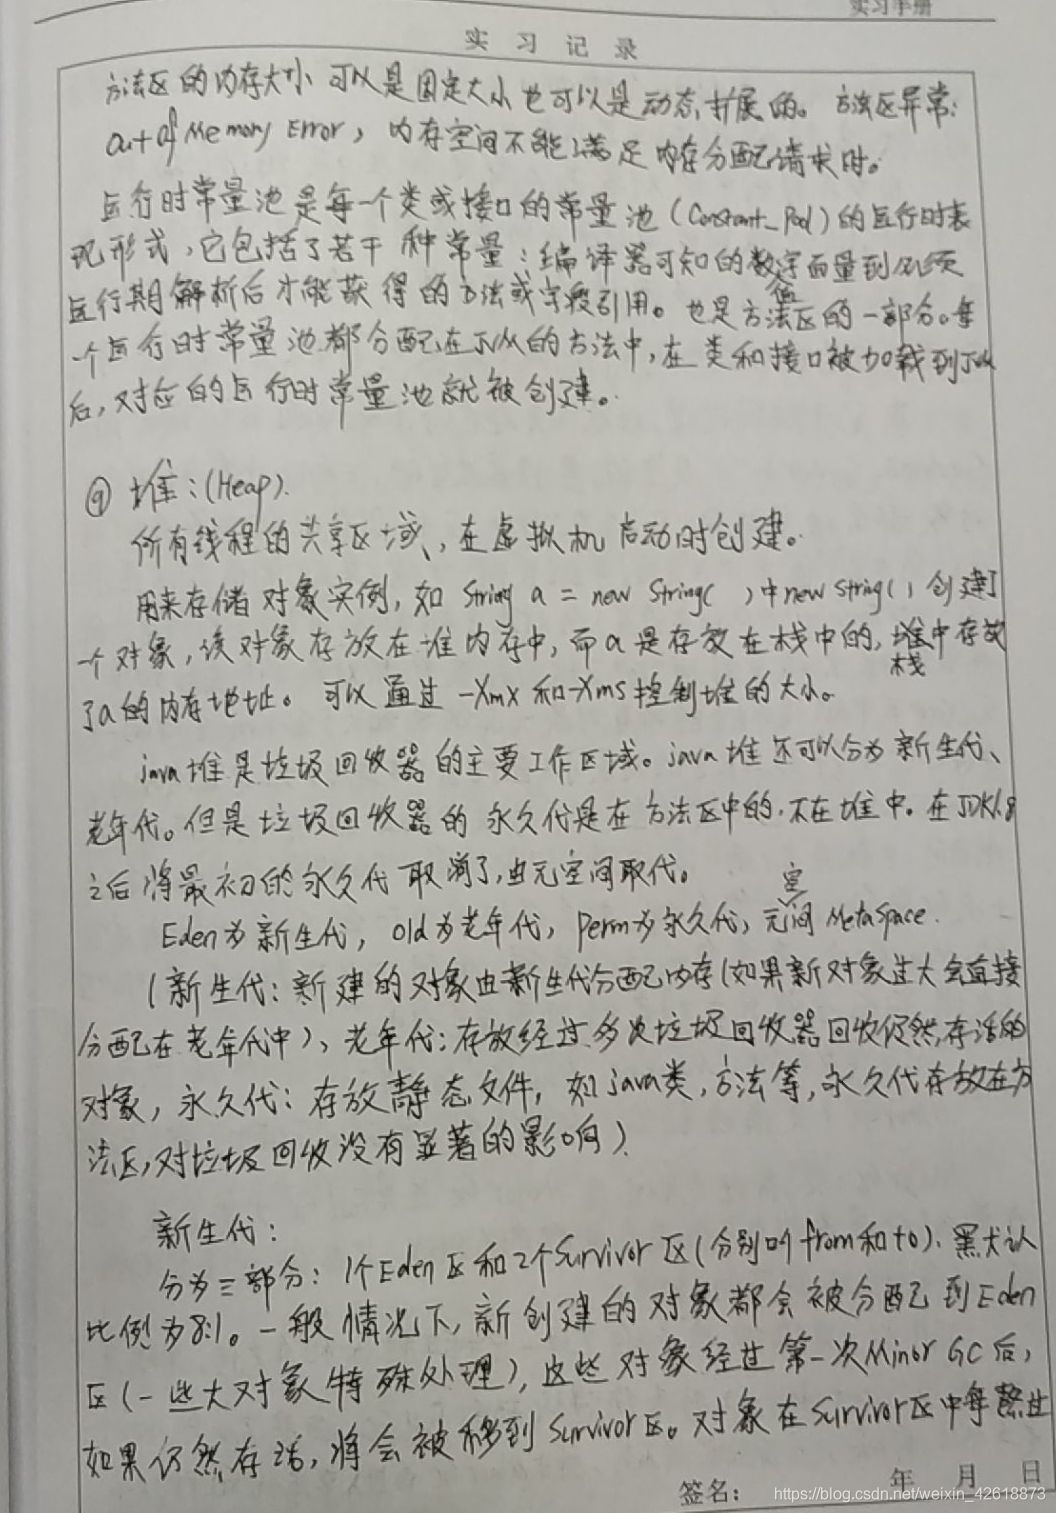 实习手册
实习记录
方法区的内存大小可以是固定大小也可以是动态扩展的。方法区异常:
out of Memory Error，内存空间不能满足内存分配请求时。
运行时常量池是每一个类或接口的常量池(Constant_Pool)的运行时表
现形式，它包括了若干种常量：编译器可知的数字面量到必须
值
运行期解析后才能获得的方法或字段引用。也是方法区的一部分。每
一个运行时常量池都分配在JVM的方法中，在类和接口被加载到JVM
后，对应的运行时常量池就被创建。
④ 堆：(Heap).
所有线程的共享区域，在虚拟机启动时创建。
用来存储对象实例，如 String a = new String( )中new String( )创建了
一个对象，该对象存放在堆内存中，而a是存放在栈中的，堆中存放
栈
了a的内存地址。可以通过 -Xmx 和-Xms控制堆的大小。
java堆是垃圾回收器的主要工作区域。java堆还可以分为新生代、
老年代。但是垃圾回收器的永久代是在方法区中的.不在堆中。在JDK1.8
之后将最初的永久代取消了,由元空间取代。
空
Eden为新生代，old为老年代，perm为永久代，元间 MetaSpace.
(新生代：新建的对象由新生代分配内存(如果新对象过大会直接
分配在老年代中)、老年代：存放经过多次垃圾回收器回收仍然存活的
对象，永久代：存放静态文件，如java类,方法等,永久代存放在方
法区,对垃圾回收没有显著的影响)
新生代：
分为三部分：1个Eden区和2个Survivor区(分别叫from和to).默认
比例为8:1。一般情况下,新创建的对象都会被分配到Eden
区(一些大对象特殊处理),这些对象经过第一次Minor GC后,
如果仍然存活,将会被移到Survivor区。对象在Survivor区中每熬过
签名： 年 月 日
https://blog.csdn.net/weixin_42618873